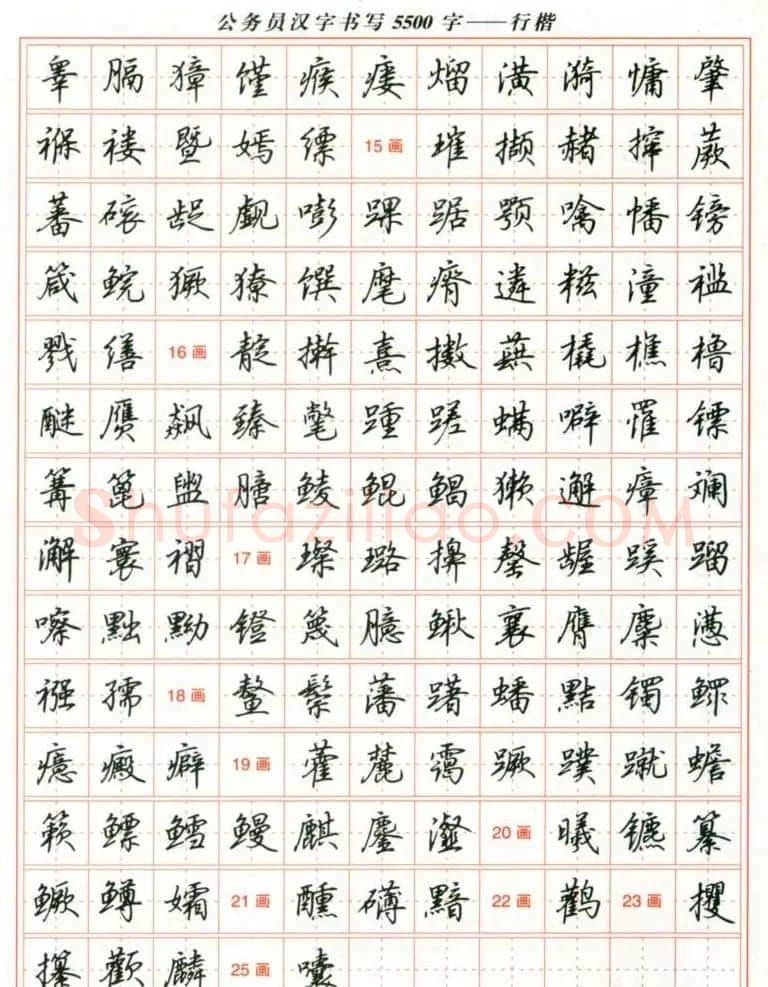 公务员汉字书写5500字——行楷
睾膈獐馑瘊瘘熘潢漪慵肇
褓褛暨嫣缥15画璀撷赭撺蕨
蕃磙龊觑嘭踝踞颚噙幡镑
箴鲩獗獠馔麾瘠遴糍潼褴
戮缮16画靛擀熹擞蕻橇樵橹
醚赝飙臻氅踵蹉螨噼罹镖
篝篦盥膪鲮鲲鲳獭邂瘴斓
澥寰褶17画璨璐擤罄龌蹊蹓
嚓黜黝镫篾臆鳅襄膺糜懑
襁孺18画鏊鬃藩躇蟠黠镯鳏
癔癜癖19画藿麓霭蹶蹼蹴蟾
籁鳔鳕鳗麒鏖瀣20画曦镳纂
鳜鳟孀21画醺礴黯22画鹳23画攫
攥颧麟25画囔
Shufaziliao.COM